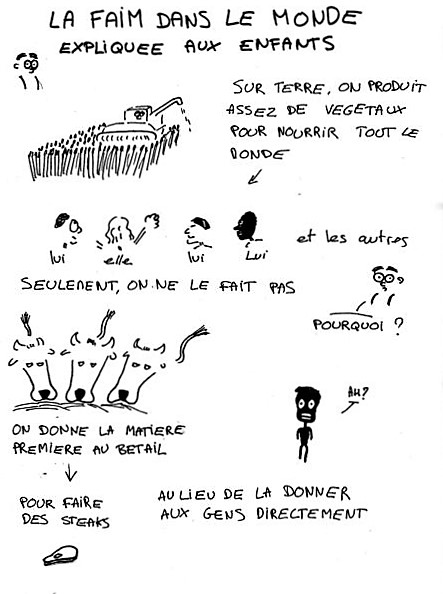 LA FAIM DANS LE MONDE
EXPLIQUEE AUX ENFANTS
SUR TERRE, ON PRODUIT
ASSEZ DE VEGETAUX
POUR NOURRIR TOUT LE
MONDE
lui
elle
lui
Lui
et les autres
SEULEMENT, ON NE LE FAIT PAS
POURQUOI ?
ON DONNE LA MATIERE
PREMIERE AU BETAIL
AH?
POUR FAIRE
DES STEAKS
AU LIEU DE LA DONNER
AUX GENS DIRECTEMENT